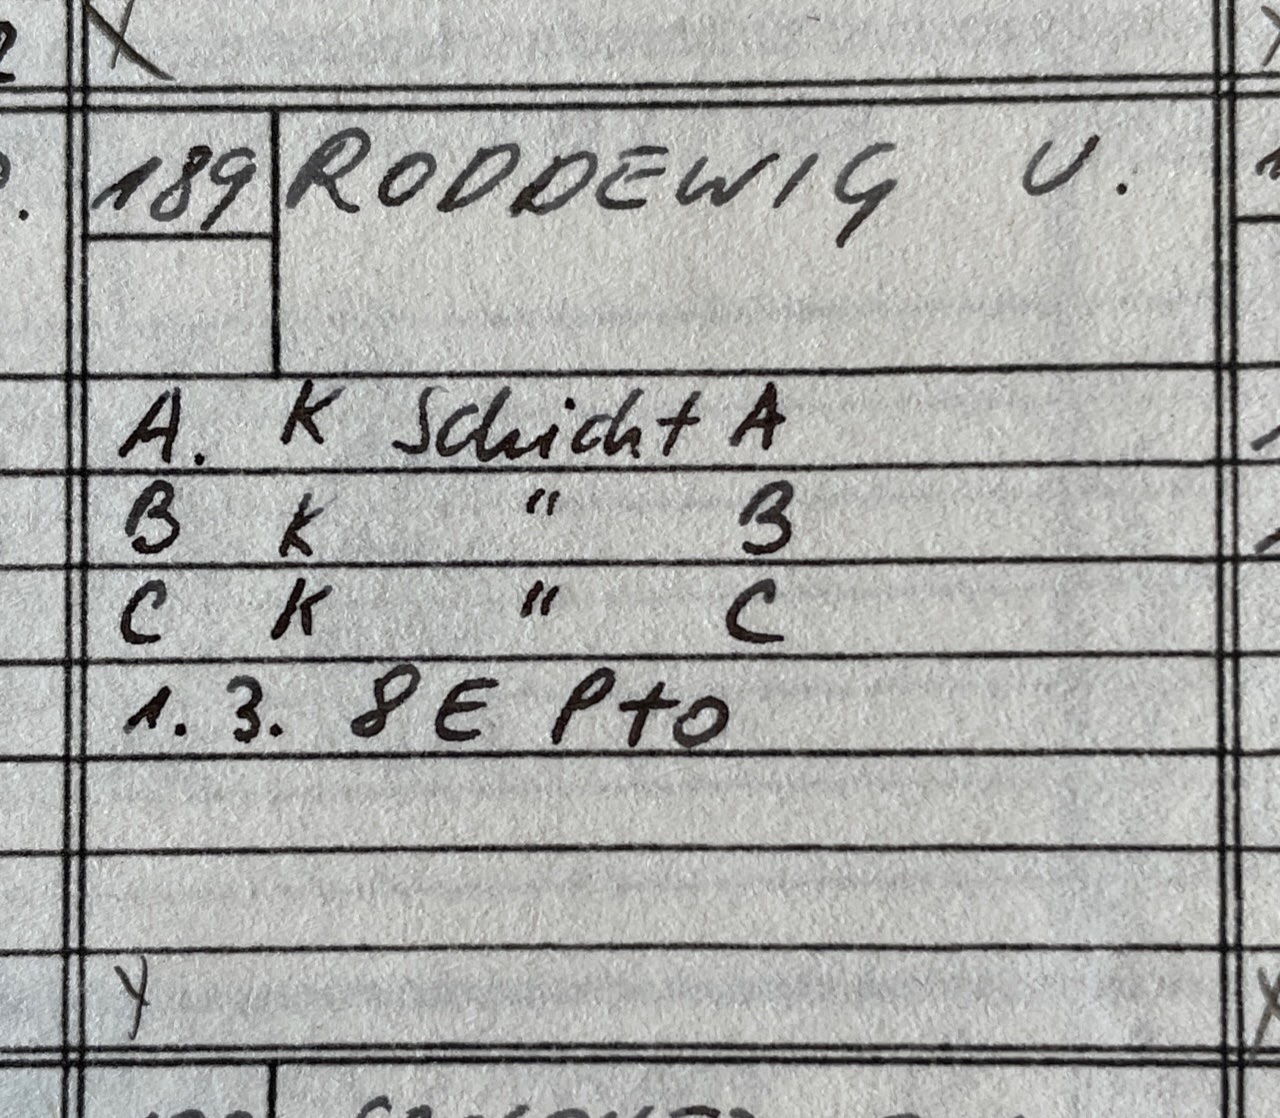 189 RODDEWIG U.
A. K Schicht A
B K " B
C K " C
1. 3. 8 E Pto
y